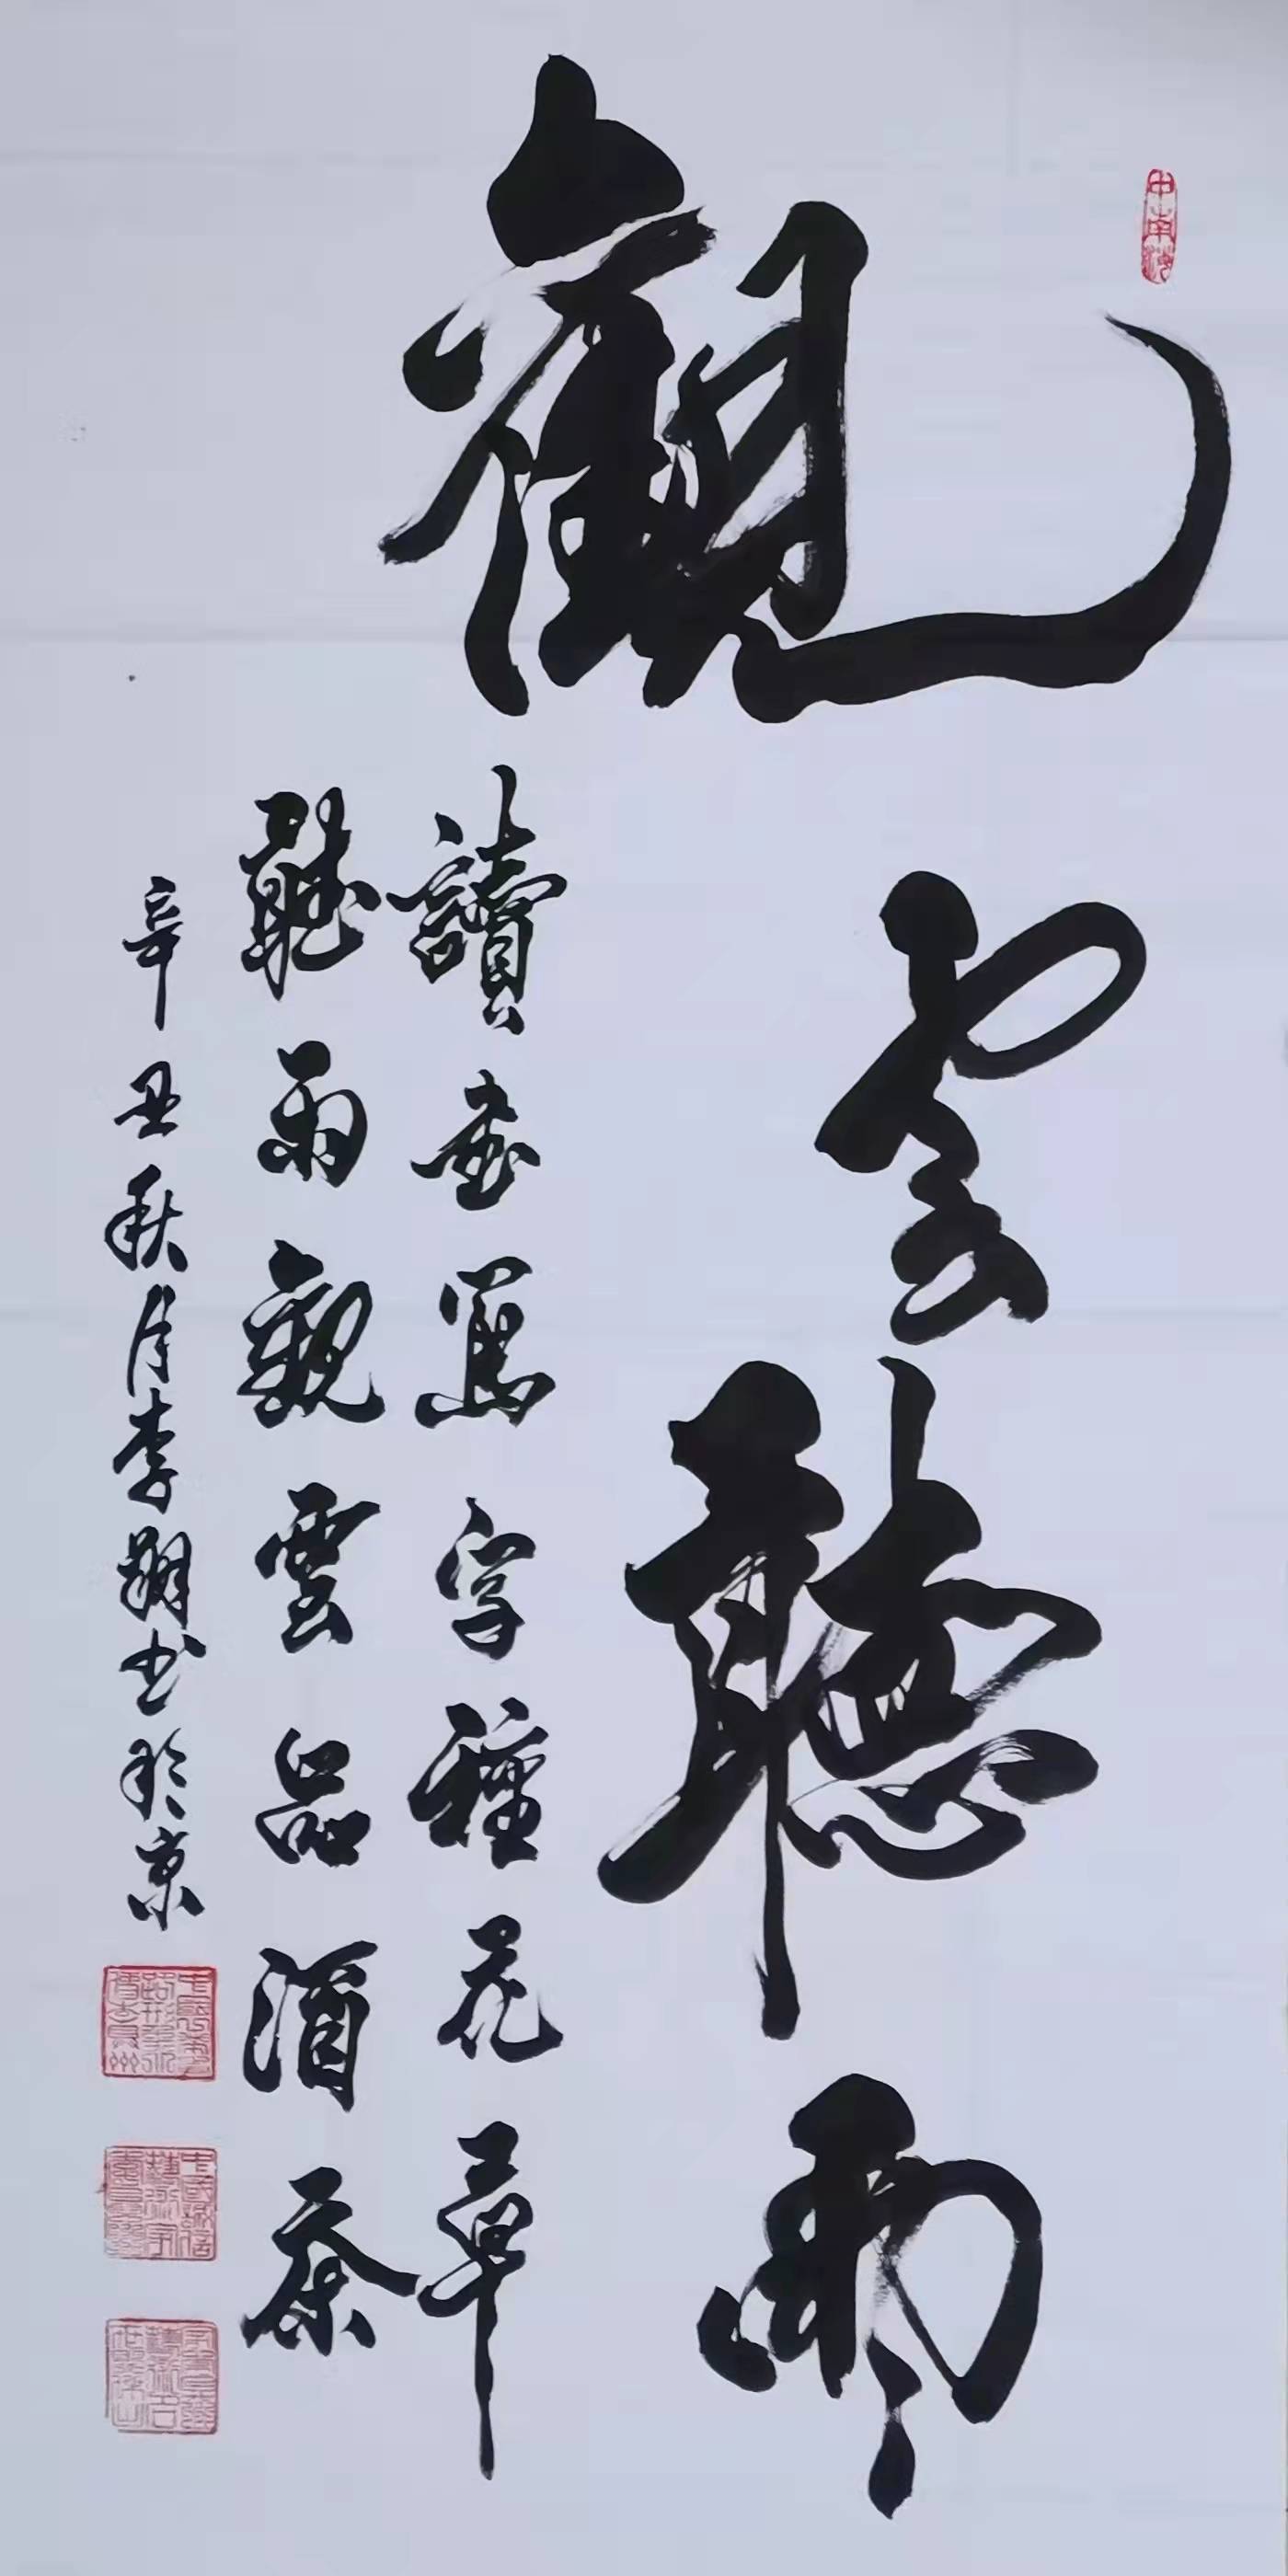 中南海
觀雲聽雨
讀書寫字種花草
聽雨觀雲品酒茶
辛丑秋月李翔书於京